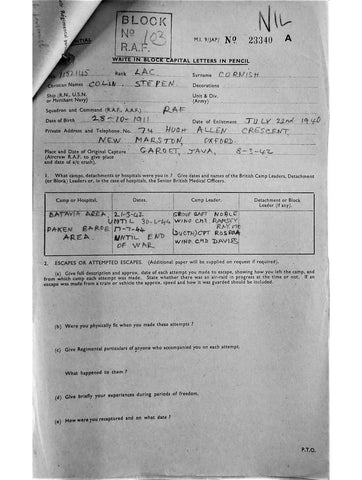 BLOCK
No 103
R.A.F.
NIL
M.I. 9/JAP/ No 23340 A
WRITE IN BLOCK CAPITAL LETTERS IN PENCIL
Rank LAC. Surname CORNISH
Christian Names COLIN STEPEN Decorations
Ship (R.N., U.S.N. or Merchant Navy) Unit & Div. (Army)
Squadron or Command (R.A.F., A.A.F.) RAF
Date of Birth 28-10-1911 Date of Enlistment JULY 22nd 1940
Private Address and Telephone No. 74 HUGH ALLEN CRESCENT,
NEW MARSTON, OXFORD.
Place and Date of Original Capture GAROET, JAVA, 8-3-42
(Aircrew R.A.F. to give place
and date of a/c crash).
1. What camps, detachments or hospitals were you in? Give dates and names of the British Camp Leaders, Detachment
(or Block) Leaders or, in the case of hospitals, the Senior British Medical Officers.
Camp or Hospital. Dates. Camp Leader. Detachment or Block Leader (if any).
BATAVIA AREA. 21-3-42 GROUP CAPT NOBLE
UNTIL 30-6-44 WING CMR RAMSEY
PAKEN BAROE 17-7-44
AREA. UNTIL END (DUCTH) CPT
OF WAR WING CMD DAVIES
2. ESCAPES OR ATTEMPTED ESCAPES. (Additional paper will be supplied on request if required).
(a) Give full description and approx. date of each attempt you made to escape, showing how you left the camp, and
from which camp each attempt was made. State whether there was an air-raid in progress at the time or not. If an
escape was made from a train or vehicle the approx. speed and how it was guarded should be included.
(b) Were you physically fit when you made these attempts?
(c) Give Regimental particulars of anyone who accompanied you on each attempt.
What happened to them?
(d) Give briefly your experiences during periods of freedom.
(e) How were you recaptured and on what date?
P.T.O.